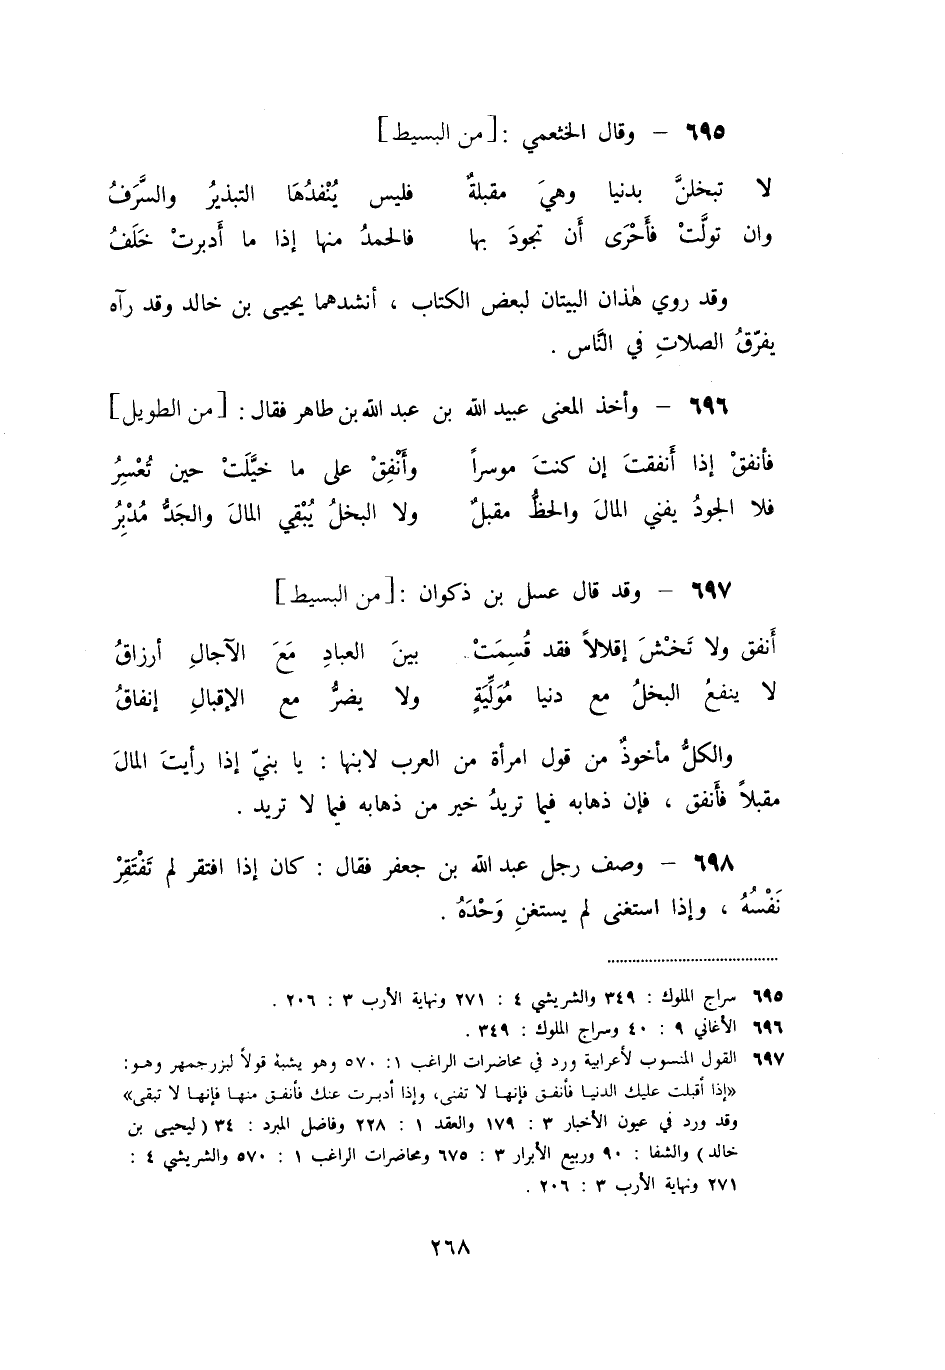 ٦٩٥ – وقال الخثعمي : [ من البسيط ]
لا تبخلنَّ بدنيا وهيَ مقبلةٌ فليس يُنْفدُهَا التبذيرُ والسَّرَفُ
وان تولَّتْ فأَحْرَى أَن تجودَ بها فالحمدُ منها إذا ما أَدبرتْ خَلَفُ
وقد روي هٰذان البيتان لبعض الكتاب ، أنشدهما يحيى بن خالد وقد رآه
يفرّقُ الصلاتِ في النَّاس .
٦٩٦ – وأخذ المعنى عبيد الله بن عبد الله بن طاهر فقال : [ من الطويل ]
فأنفقْ إذا أَنفقتَ إن كنتَ موسراً وأَنْفِقْ على ما خيَّلَتْ حين تُعْسِرُ
فلا الجودُ يفني المالَ والحظُّ مقبلٌ ولا البخلُ يُبْقِي المالَ والجَدُّ مُدْبِرُ
٦٩٧ – وقد قال عسل بن ذكوان : [ من البسيط ]
أَنفق ولا تَخْشَ إقلالاً فقد قُسِمَتْ بينَ العبادِ مَعَ الآجالِ أرزاقُ
لا ينفعُ البخلُ مع دنيا مُوَلِّيَةٍ ولا يضرُّ مع الإقبالِ إنفاقُ
والكلُّ مأخوذٌ من قول امرأة من العرب لابنها : يا بنيّ إذا رأيتَ المالَ
مقبلاً فأَنفق ، فإن ذهابه فيما تريدُ خير من ذهابه فيما لا تريد .
٦٩٨ – وصف رجل عبد الله بن جعفر فقال : كان إذا افتقر لم تَفْتَقِرْ
نَفْسُهُ ، وإذا استغنى لم يستغنِ وَحْدَهُ .
٦٩٥ سراج الملوك : ٣٤٩ والشريشي ٤ : ٢٧١ ونهاية الأرب ٣ : ٢٠٦ .
٦٩٦ الأغاني ٩ : ٤٠ وسراج الملوك : ٣٤٩ .
٦٩٧ القول المنسوب لأعرابية ورد في محاضرات الراغب ١ : ٥٧٠ وهو يشبه قولاً لبزرجمهر وهو :
«إذا أقبلت عليك الدنيا فأنفق فإنها لا تفنى، وإذا أدبرت عنك فأنفق منها فإنها لا تبقى»
وقد ورد في عيون الأخبار ٣ : ١٧٩ والعقد ١ : ٢٢٨ وفاضل المبرد : ٣٤ ( ليحيى بن
خالد ) والشفا : ٩٠ وربيع الأبرار ٣ : ٦٧٥ ومحاضرات الراغب ١ : ٥٧٠ والشريشي ٤ :
٢٧١ ونهاية الأرب ٣ : ٢٠٦ .
٢٦٨